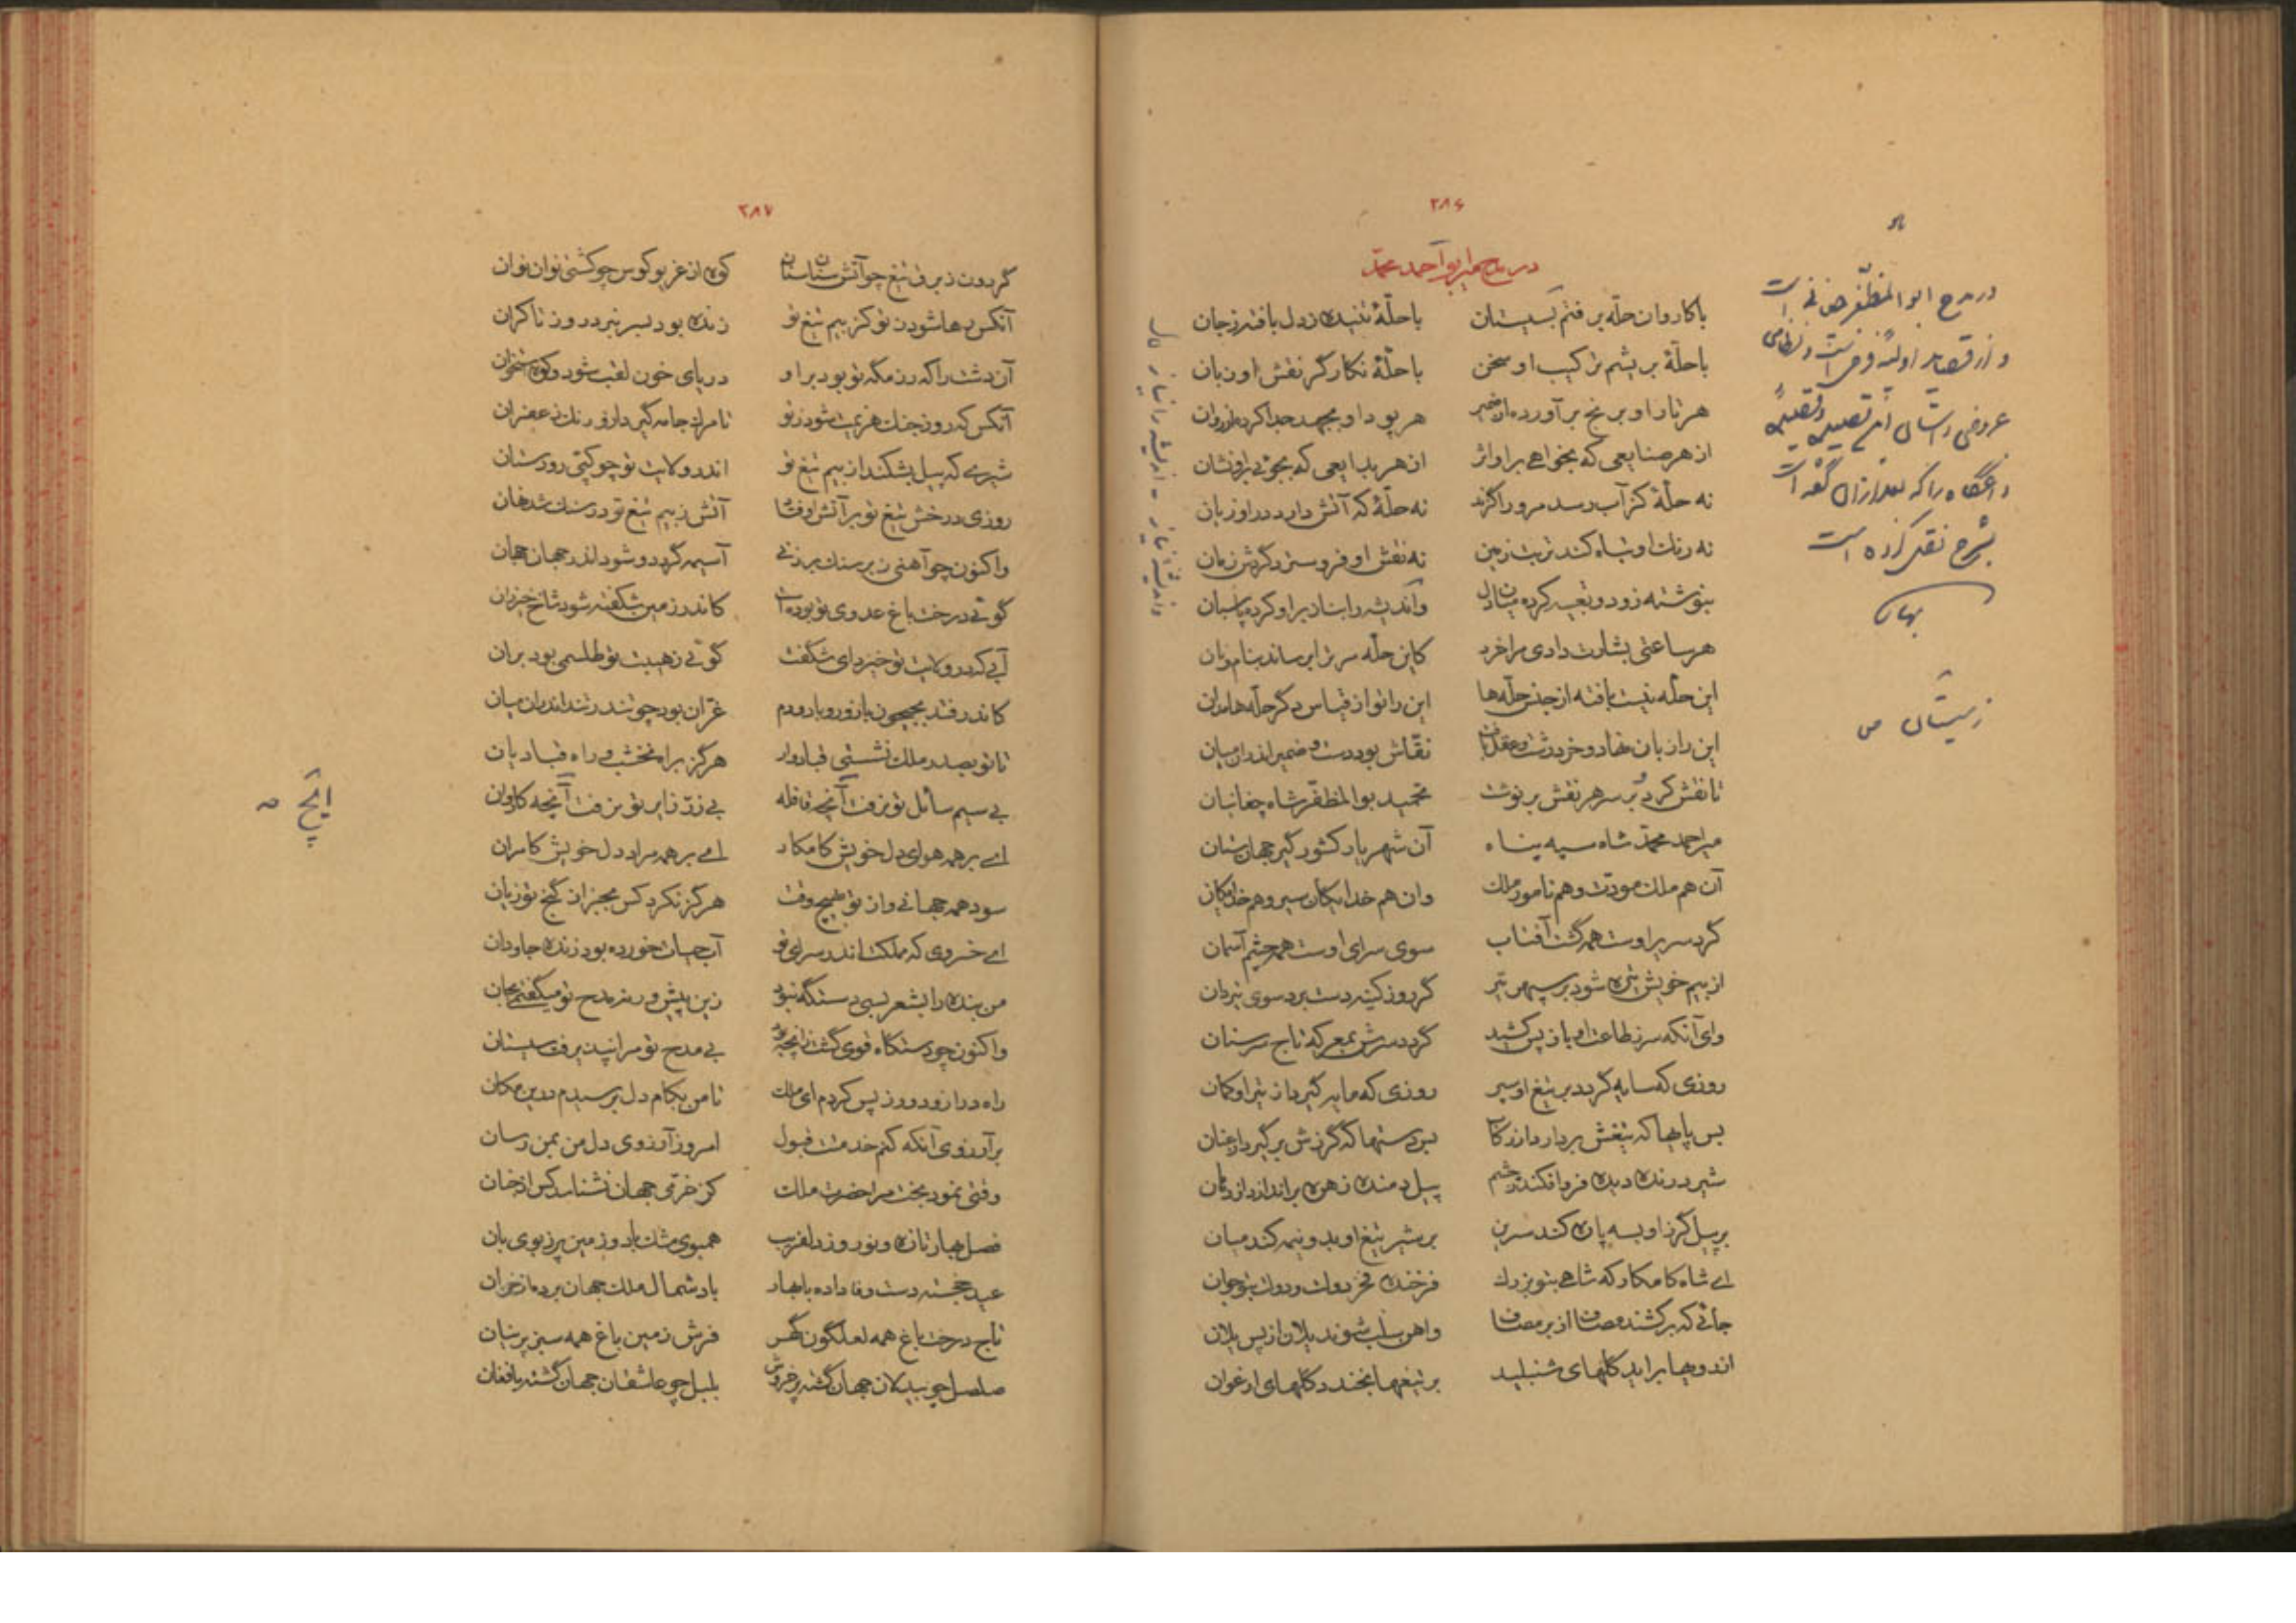 ۲۸۶
در مدح میر ابو احمد محمد
با کاروان حله برفتم ز سیستان با حلهٔ تنیده ز دل بافته ز جان
با حلهٔ بریشم ترکیب او سخن با حلهٔ نگارگر نقش او زبان
هر تار او برنج برآورده از ضمیر هر پود او بجهد جدا کرده از روان
از هر صنایعی که بخواهی بر او اثر از هر بدایعی که بجوئی بر او نشان
نه حلهٔ کز آب رسد مر ورا گزند نه حلهٔ که آتش دارد ورا زیان
نه رنگ او تباه کند تربت زمین نه نقش او فرو سترد گردش زمان
بنوشته زود و تعبیه کرده میان دل واندیشه را بناز بر او کرده پاسبان
هر ساعتی بشارت دادی مرا خرد کاین حله مر ترا برساند بنام و نان
این حله نیست بافته از جنس حله‌ها این را تو از قیاس دگر حله‌ها مدان
این را زبان نهاد و خرد رشت و عقل بافت نقاش بود دست و ضمیر اندر آن میان
تا نقش کرد بر سر هر نقش بر نوشت تحمید بوالمظفر شاه چغانیان
میر احمد محمد شاه سپه پناه آن شهریار کشور گیر جهان ستان
آن هم ملک مودت و هم نامور ملک وان هم خدایگان سیر و هم خدایگان
گرد سریر اوست همه گشت آفتاب سوی سرای اوست همه چشم آسمان
از بیم خویش تیره شود بر سپهر تیر گر روز کینه دست برد سوی تیردان
وای آنکه سر ز طاعت او باز پس کشید گردد سرش بمعرکه تاج سر سنان
روزی که سایه گردد بر تیغ او سپر روزی که مایه گیرد از تیر او کمان
بس پایها که تیغش بردارد از رکاب بس دستها که گرزش برگیرد از عنان
شیر درنده دیده فرو افکند ز چشم پیل دمنده زهره براندازد از دهان
بر پیل گرز او بسه پاره کند سرین بر شیر تیغ او بدو نیمه کند میان
ای شاه کامکار که شاهی بتو بزرگ فرخنده فخر دولت و دولت بتو جوان
جائی که برکشند مصاف از بر مصاف واهن سلب شوند یلان از پس یلان
از رویها براید گلهای شنبلید بر تیغها بخندد گلهای ارغوان
در مدح ابوالمظفر چغانی است
و از قصاید اولیهٔ فرخی است و نظامی
عروضی داستان این قصیده و قصیدهٔ
داغگاه را که بعد از آن گفته است
بشرح نقل کرده است
بهار
ز سیستان ص
۲۸۷
گردون ز برق تیغ چو آتش سنان سنان کوه از غریو کوس چو کشتی نوان نوان
آنکس رها شود ز تو کز بیم تیغ تو زنده بود بسر نبرد روز تا کران
آن دشت را که رزمگه تو بود بر او دریای خون لقب شود و کوه استخوان
آنکس که روز جنگ هزیمت شود ز تو تا مرگ جامه گیرد ازو رنگ زعفران
شیری که پیل بشکند از بیم تیغ تو اندر ولایت تو چو کپی رود ستان
روزی درخش تیغ تو بر آتش اوفتاد آتش ز بیم تیغ تو در سنگ شد نهان
واکنون چو آهنی ز بر سنگ بر زنی آسیمه گردد و شود اندر جهان جهان
گوئی درخت باغ عدوی تو بوده است کاندر زمین شکفته شود شاخ خیزران
آبی که در ولایت تو خیزد ای شگفت گوئی ز هیبت تو طلسمی بود بر آن
کاندر فتد بجیحون با زور و با ورم غران بود چو تندر تند اندر آن میان
تا تو بصدر ملک نشستی قبادوار هرگز براه نخشب و راه قبادیان
بی سیم سائل تو نرفت آنچه قافله بی زر زایر تو نرفت آنچه کاروان
ای بر همه هوای دل خویش کامکار ای بر همه مراد دل خویش کامران
سود همه جهانی و از تو بهیچ وقت هرگز نکرد کس بجز از گنج تو زیان
ای خسروی که مملکت اندر سرای تو آب حیات خورده بود زنده جاودان
من بنده را بشعر بسی دستگه نبود زین پیش ورنه مدح تو میگفتمی بجان
واکنون چو دستگاه قوی گشت زانچه بود بی مدح تو مرا نپذیرفت سیستان
راه دراز و دور ز پس کردم ای ملک تا من بکام دل برسیدم درین مکان
بر آرزوی آنکه کنم خدمت قبول امروز آرزوی دل من بمن رسان
وقتی نمود بخت مرا حضرت ملک کز خرمی جهان نشناسد کس از جنان
فصل بهار تازه و نوروز دلفریب همبوی مشک باد و زمین پر ز بوی بان
عید خجسته دست وفا داده با بهار باد شمال ملک جهان برده از خزان
تاج درخت باغ همه لعلگون گهر فرش زمین باغ همه سبز پرنیان
صلصل چو بیدلان جهان گشته پر خروش بلبل چو عاشقان جهان گشته با فغان